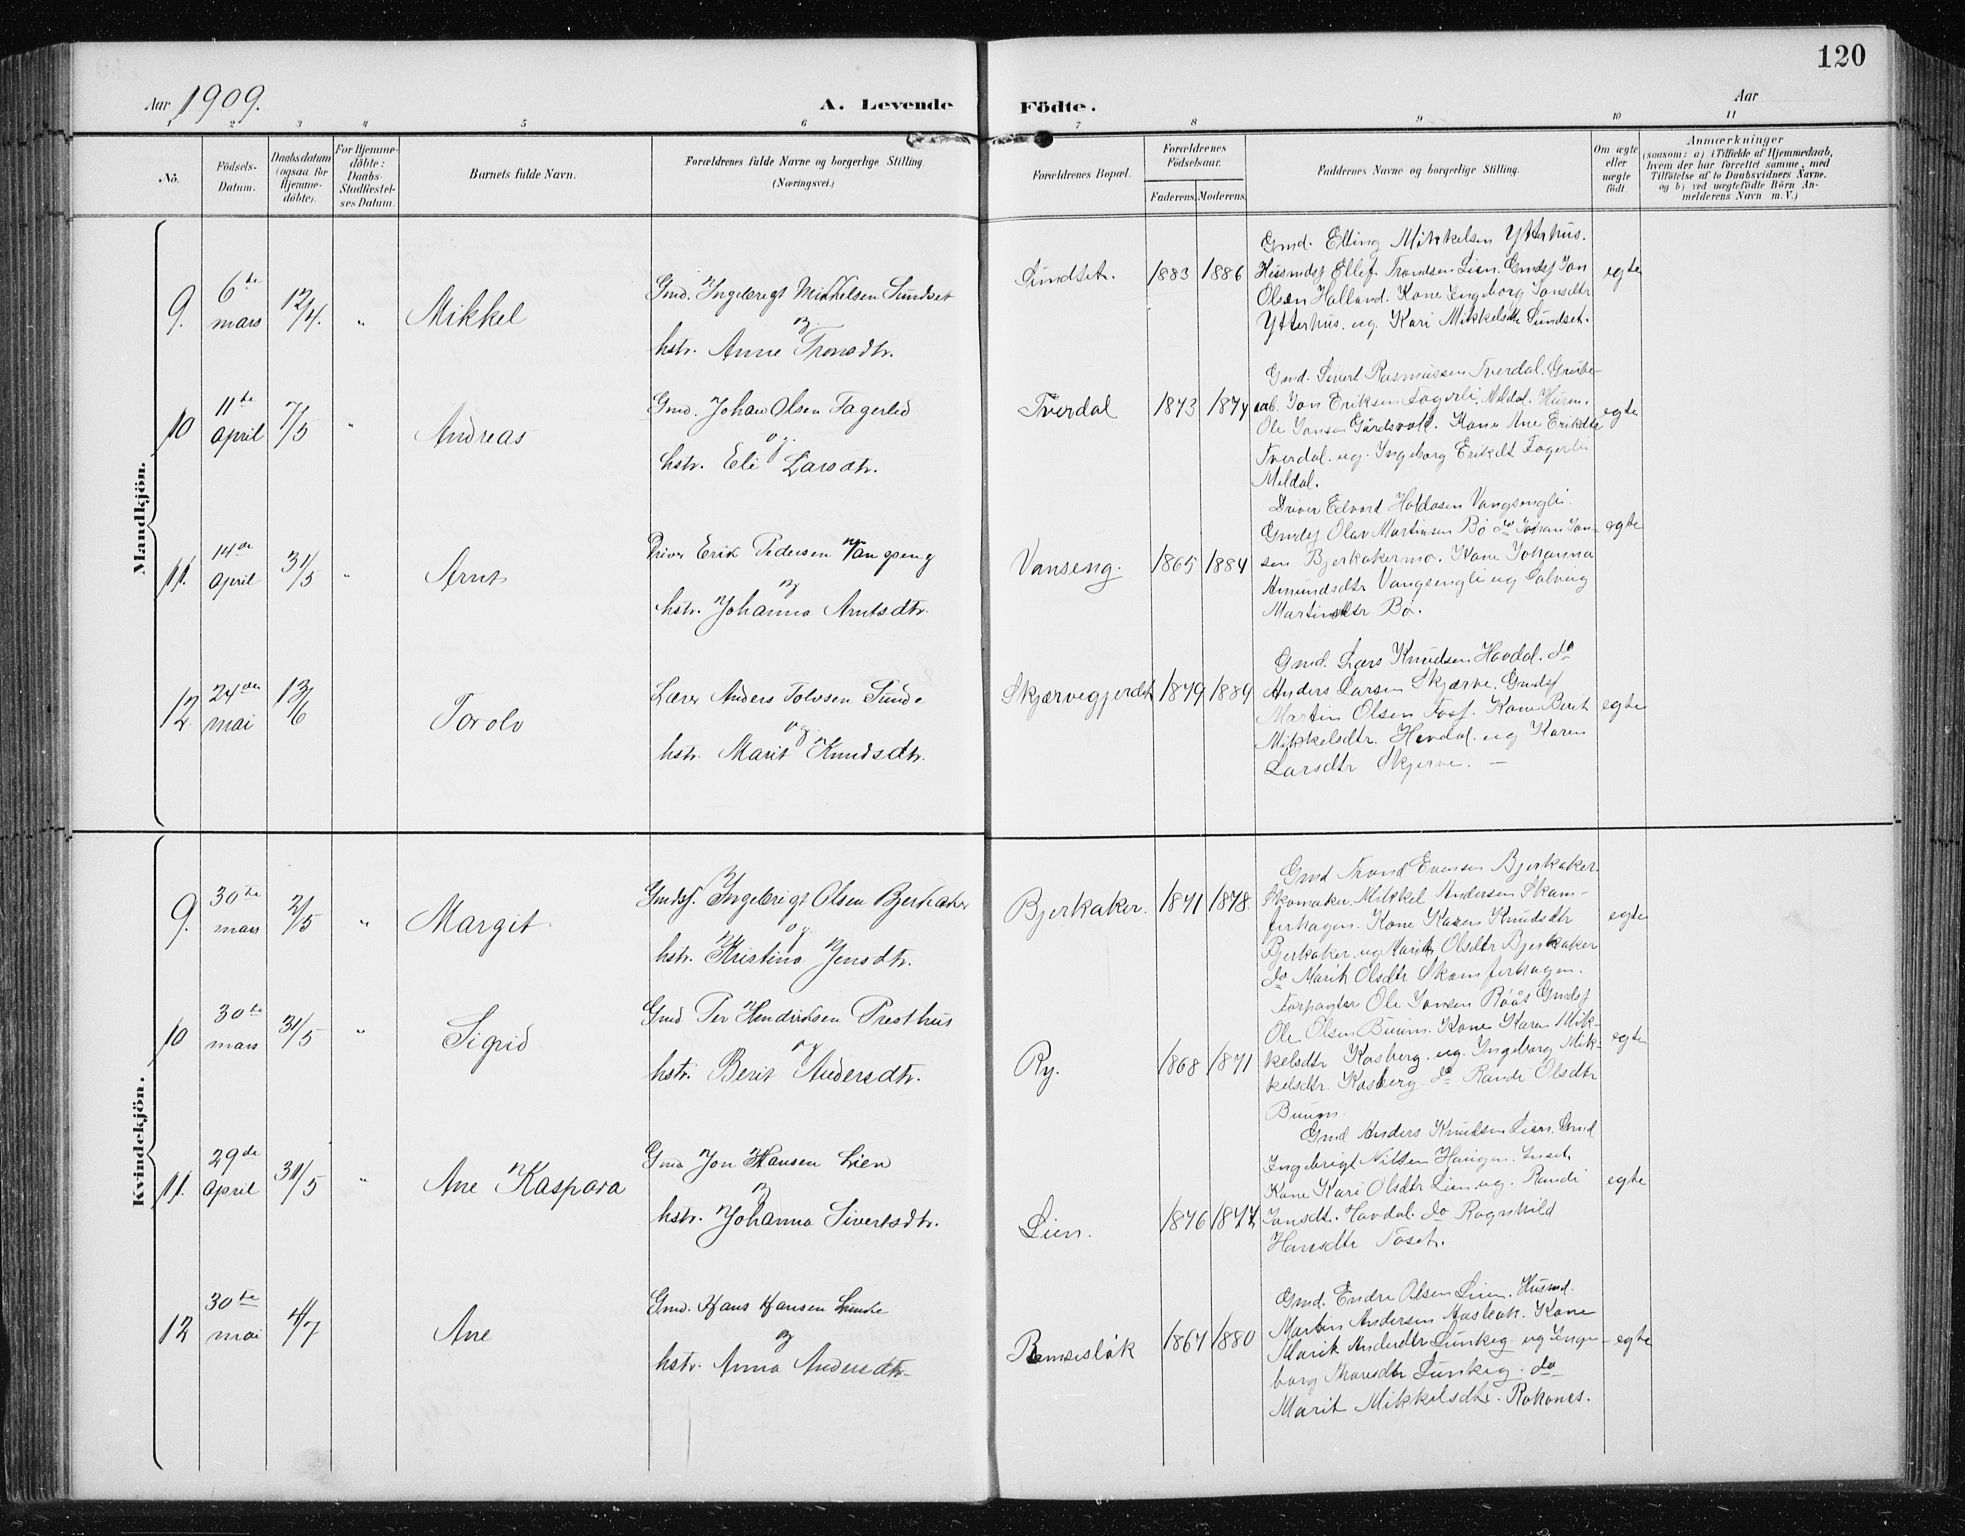 120
Aar 1909.
A. Levende
Födte.
Aar
1 2 3 4 5 6 7 8 9 10 11
No.
Födsels-Datum.
Daabsdatum (ogsaa for Hjemme-döbte).
For Hjemme-döbte: Daabs-Stadfæstel-ses Datum.
Barnets fulde Navn.
Forældrenes fulde Navne og borgerlige Stilling.
(Næringsvei.)
Forældrenes Bopæl.
Forældrenes Födselsaar.
Faderens. Moderens.
Faddernes Navne og borgerlige Stilling.
Om ægte eller uægte födt.
Anmærkninger
(saasom: a) i Tilfælde af Hjemmedaab, hvem der har forrettet samme, med Tilföielse af to Daabsvidners Navne. og b) ved uægtefödte Börn An-melderens Navn m. V.)
Mandkjön.
9. 6te mars 12/4. " Mikkel
Gmd. Ingebrigt Mikkelsen Sundset
og
hstr. Anne Tronsdtr.
Sundset. 1883 1886
Gmd. Elling Mikkelsen Ytterhus.
Husmdsf Ellef Trondsen Lien. Gmdsf Jon
Olsen Halland. Kone Ingeborg Jonsdtr
Ytterhus. og. Kari Mikkelsdtr Sundset.
egte
10 11te April 7/5 " Andreas
Gmd. Johan Olsen Fagerlid
og
hstr. Eli Larsdtr.
Tverdal 1873 1874
Gmd. Sivert Rasmussen Tverdal. Grube-
arb. Jon Eriksen Fagerli, Meldal. Husm.
Ole Jonsen Gårdsvoll. Kone Ane Eriksdtr
Tverdal. og. Ingeborg Eriksdt Fagerli
Meldal.
egte
11. 14de April 31/5 " Arnt
Driver Erik Pedersen Vangseng
og
hstr. Johanna Arntsdtr.
Vanseng. 1865 1884
Driver Edvard Haldosen Vangsengli.
Gmdsf Olav Martinsen Bö do Johan Jon-
sen Bjerkakermo. Kone Johanna
Amundsdtr Vangsengli og Solveig
Martinsdtr Bö.
egte
12. 24de mai 13/6 Torolv
Lærer Anders Tolvsen Sunde
og
hstr. Marit Knudsdtr.
Skjærvegjerdet 1879 1889
Gmd. Lars Knudsen Hovdal. do
Anders Larsen Skjærve. Gmdsf
Martin Olsen Foss. Kone Berit
Mikkelsdtr. Hevdal. og Karen
Larsdtr Skjerve. —
egte
Kvindekjön.
9. 30te mars 2/5 " Margit
Gmdsf. Ingebrigt Olsen Bjerkaker
og
hstr. Kristine Jensdtr.
Bjerkaker. 1871 1878.
Gmd Trond Evensen Bjerkaker.
Skomaker Mikkel Andersen Skam-
ferhagen. Kone Karen Knudsdtr
Bjerkaker. og Marit Olsdtr Bjerkaker
do Marit Olsdtr Skamferhagen.
egte
10 30te mars 31/5 " Sigrid
Gmd Per Hendriksen Presthus
og
hstr. Berit Andersdtr.
Ry. 1868 1871
Forpagter Ole Jonsen Röös Gmdsf
Ole Olsen Buum. Kone Karen Mik-
kelsdtr Kosberg. og. Ingeborg Mik-
kelsdtr. Kosberg. do Randi Olsdtr
Buum.
egte
11. 29de April 31/5 " Ane Kaspara
Gmd Jon Hansen Lien
og
hstr. Johanna Sivertsdtr.
Lien. 1876 1877
Gmd Anders Knudsen Lien. Gmd
Ingebrigt Nilsen Haugen. Inset.
Kone Kari Olsdtr Lien. og. Randi
Jonsdt. Hovdal. do Ragnhild
Hansdtr Foset.
egte
12 30te mai 4/7 Ane
Gmd. Hans Hansen
og
hstr. Anna Andersdtr.
1867 1880
Gmd. Endre Olsen Lien. Husmd.
Martin Andersen Kone
Marit Andersdtr og Inge-
borg do
Marit Mikkelsdtr. Rokones.
egte